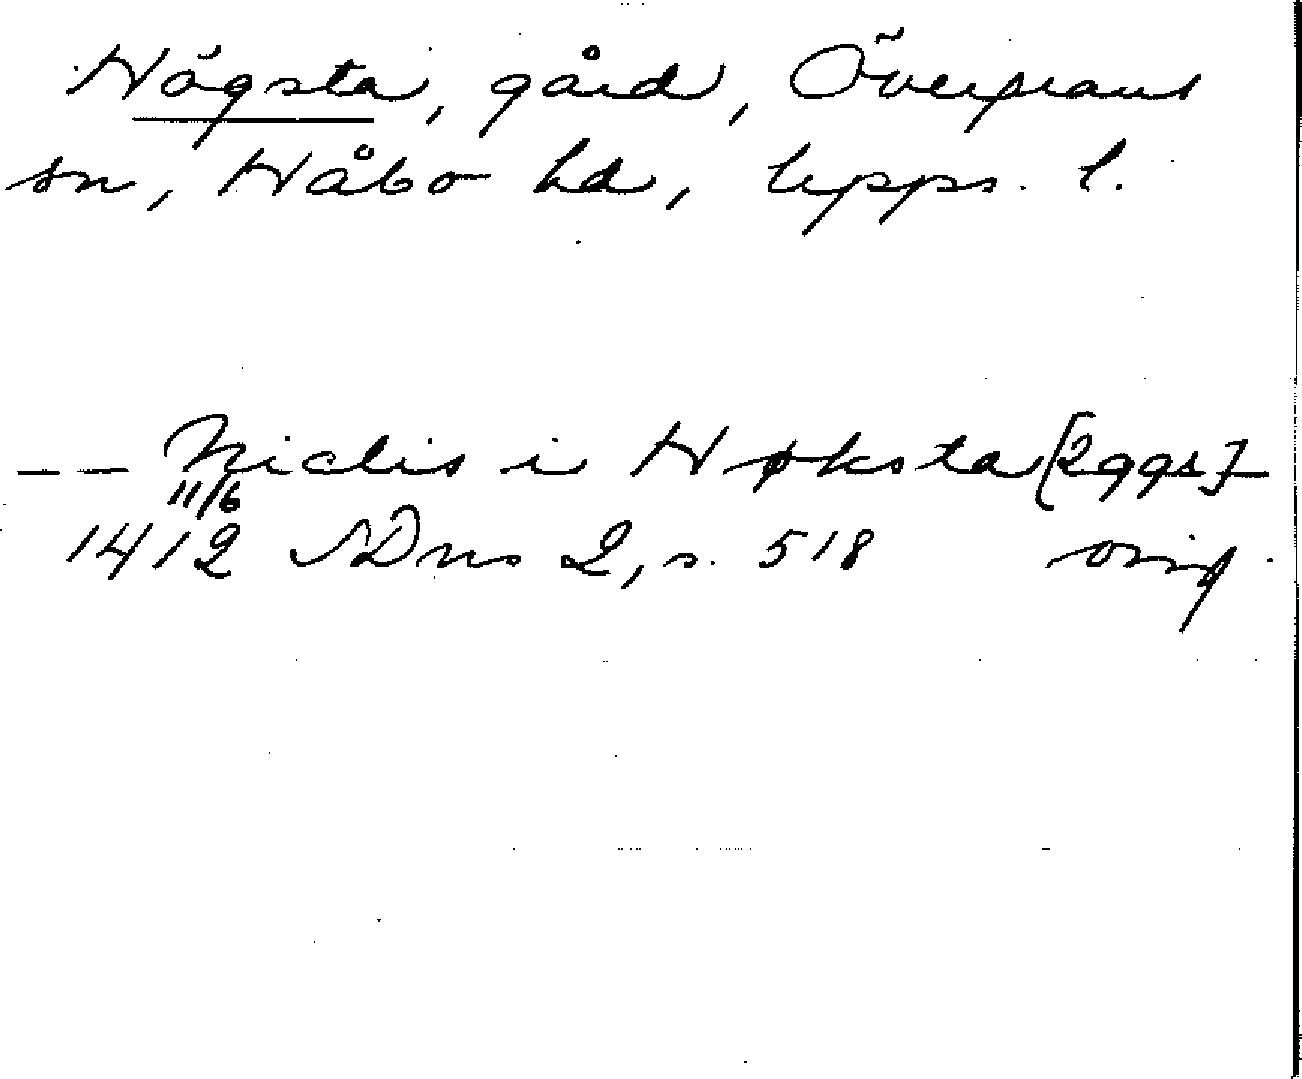 Högsta, gård, Övergrans
sn, Håbo hd, Upps. l.
-- Niclis i Høksta [2ggr] -
11/6
1412 SDns 2, s. 518 orig.